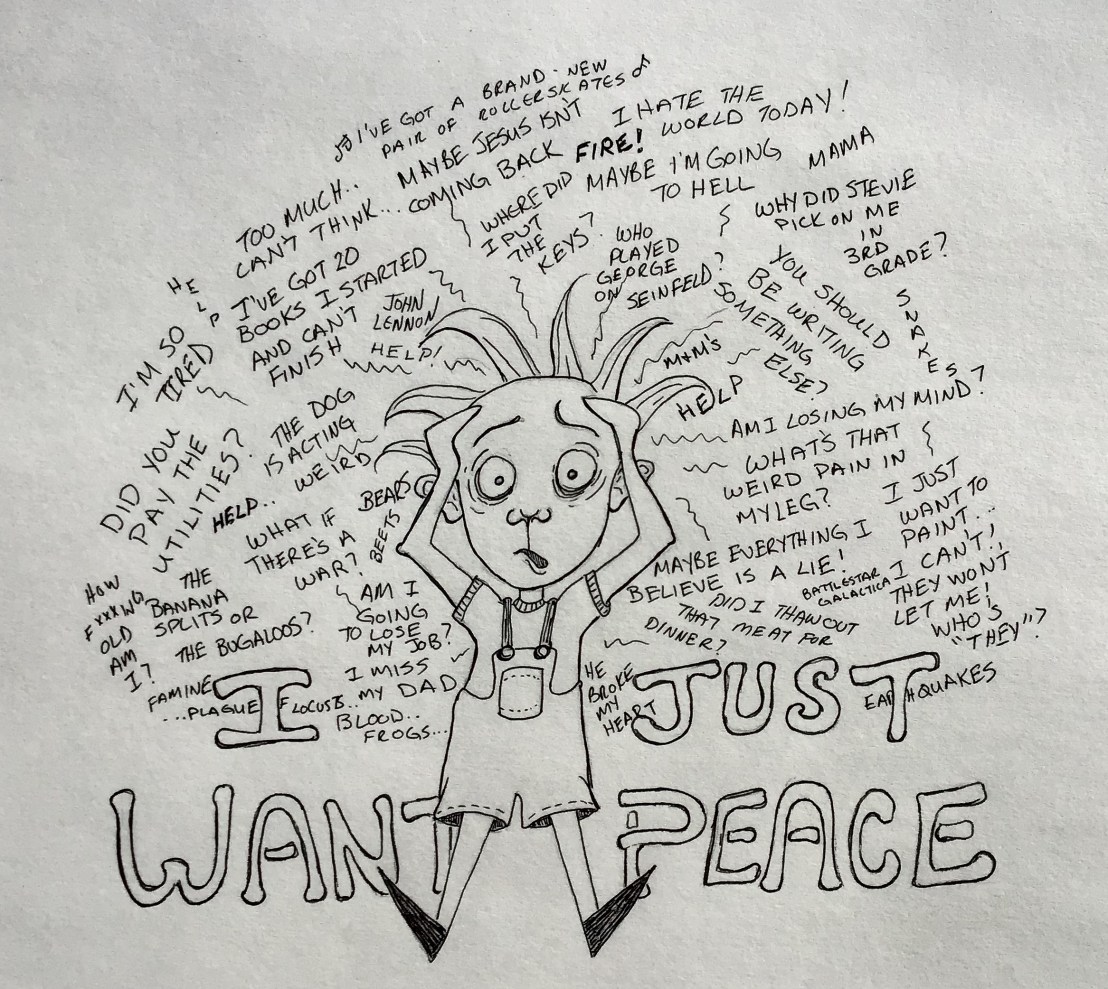 ♫ I'VE GOT A BRAND-NEW
PAIR OF ROLLERSKATES ♪
TOO MUCH..
CAN'T THINK...
MAYBE JESUS ISN'T
COMING BACK
FIRE!
I HATE THE
WORLD TODAY!
WHERE DID
I PUT
THE
KEYS?
MAYBE I'M GOING
TO HELL
MAMA
WHY DID STEVIE
PICK ON ME
IN
3RD
GRADE?
WHO
PLAYED
GEORGE
ON SEINFELD?
HELP
I'M SO
TIRED
I'VE GOT 20
BOOKS I STARTED
AND CAN'T
FINISH
JOHN
LENNON
HELP!
YOU SHOULD
BE WRITING
SOMETHING
ELSE?
SNAKES
M+M'S
HELP
AM I LOSING MY MIND?
DID YOU
PAY THE
UTILITIES?
THE DOG
IS ACTING
WEIRD
HELP..
WHAT'S THAT
WEIRD PAIN IN
MY LEG?
BEARS
BEETS
BATTLESTAR
GALACTICA
WHAT IF
THERE'S A
WAR?
I JUST
WANT TO
PAINT...
I CAN'T!,
THEY WON'T
LET ME!
WHO'S
"THEY"?
MAYBE EVERYTHING I
BELIEVE IS A LIE!
HOW
FXXXNG
OLD
AM
I?
THE
BANANA
SPLITS OR
THE BUGALOOS?
AM I
GOING
TO LOSE
MY JOB?
DID I THAW OUT
THAT MEAT FOR
DINNER?
I MISS
MY DAD
HE
BROKE
MY
HEART
FAMINE
...PLAGUE
LOCUSTS...
BLOOD..
FROGS...
EARTHQUAKES
I JUST
WANT PEACE